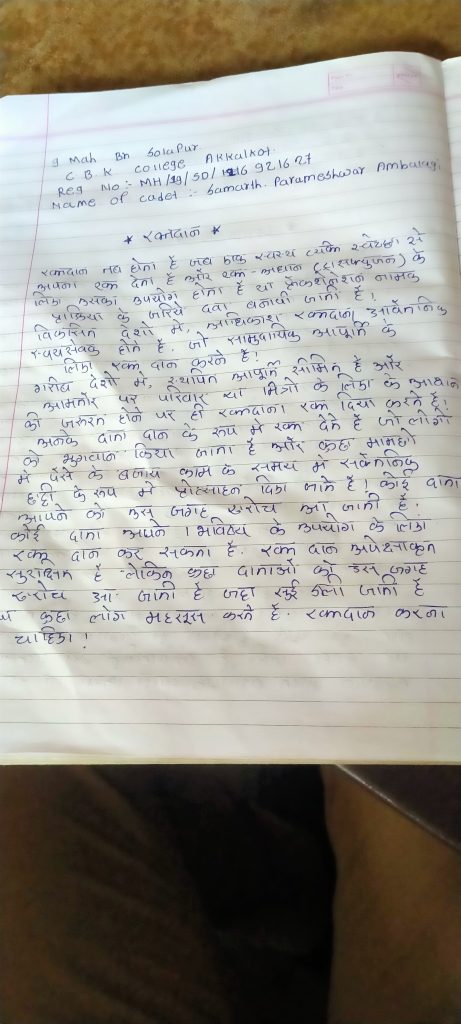 9 Mah Bn Solapur.
C B K College Akkalkot.
Reg No :- MH/19/SD/1216 921627
Name of cadet :- Samarth. Parameshwar Ambalagi
* रक्तदान *
रक्तदान तब होता है जब एक स्वस्थ व्यक्ति स्वेच्छा से
अपना रक्त देता है और रक्त-आधान (ट्रांसफ्यूजन) के
लिए उसका उपयोग होता है या फ्रैक्शनेशन नामक
प्रक्रिया के जरिये दवा बनायी जाती है!
विकसित देशो में, अधिकांश रक्तदाता अवैतनिक
स्वयंसेवक होते है. जो सामुदायिक आपूर्ति के
लिए रक्त दान करते है!
गरीब देशो में, स्थापित आपूर्ति सीमित है और
आमतौर पर परिवार या मित्रो के लिए के आधान
की जरूरत होने पर ही रक्तदाता रक्त दिया करते है!
अनेक दाता दान के रूप में रक्त देते है जो लोगो
को भुगतान किया जाता है और कहा मामलो
में पैसे के बजाय काम के समय में सवैतनिक
छुट्टी के रूप में प्रोत्साहन दिए जाते है! कोई दाता
आपने को उस जगह खरोच आ जाती है.
कोई दाता अपने । भविष्य के उपयोग के लिए
रक्त दान कर सकता है. रक्त दान अपेक्षाकृत
सुरक्षित है लेकिन कहा दाताओ को उस जगह
खरोच आ जाती है जहा सुई डाली जाती है
या कहा लोग महसूस करते है. रक्तदान करना
चाहिए!